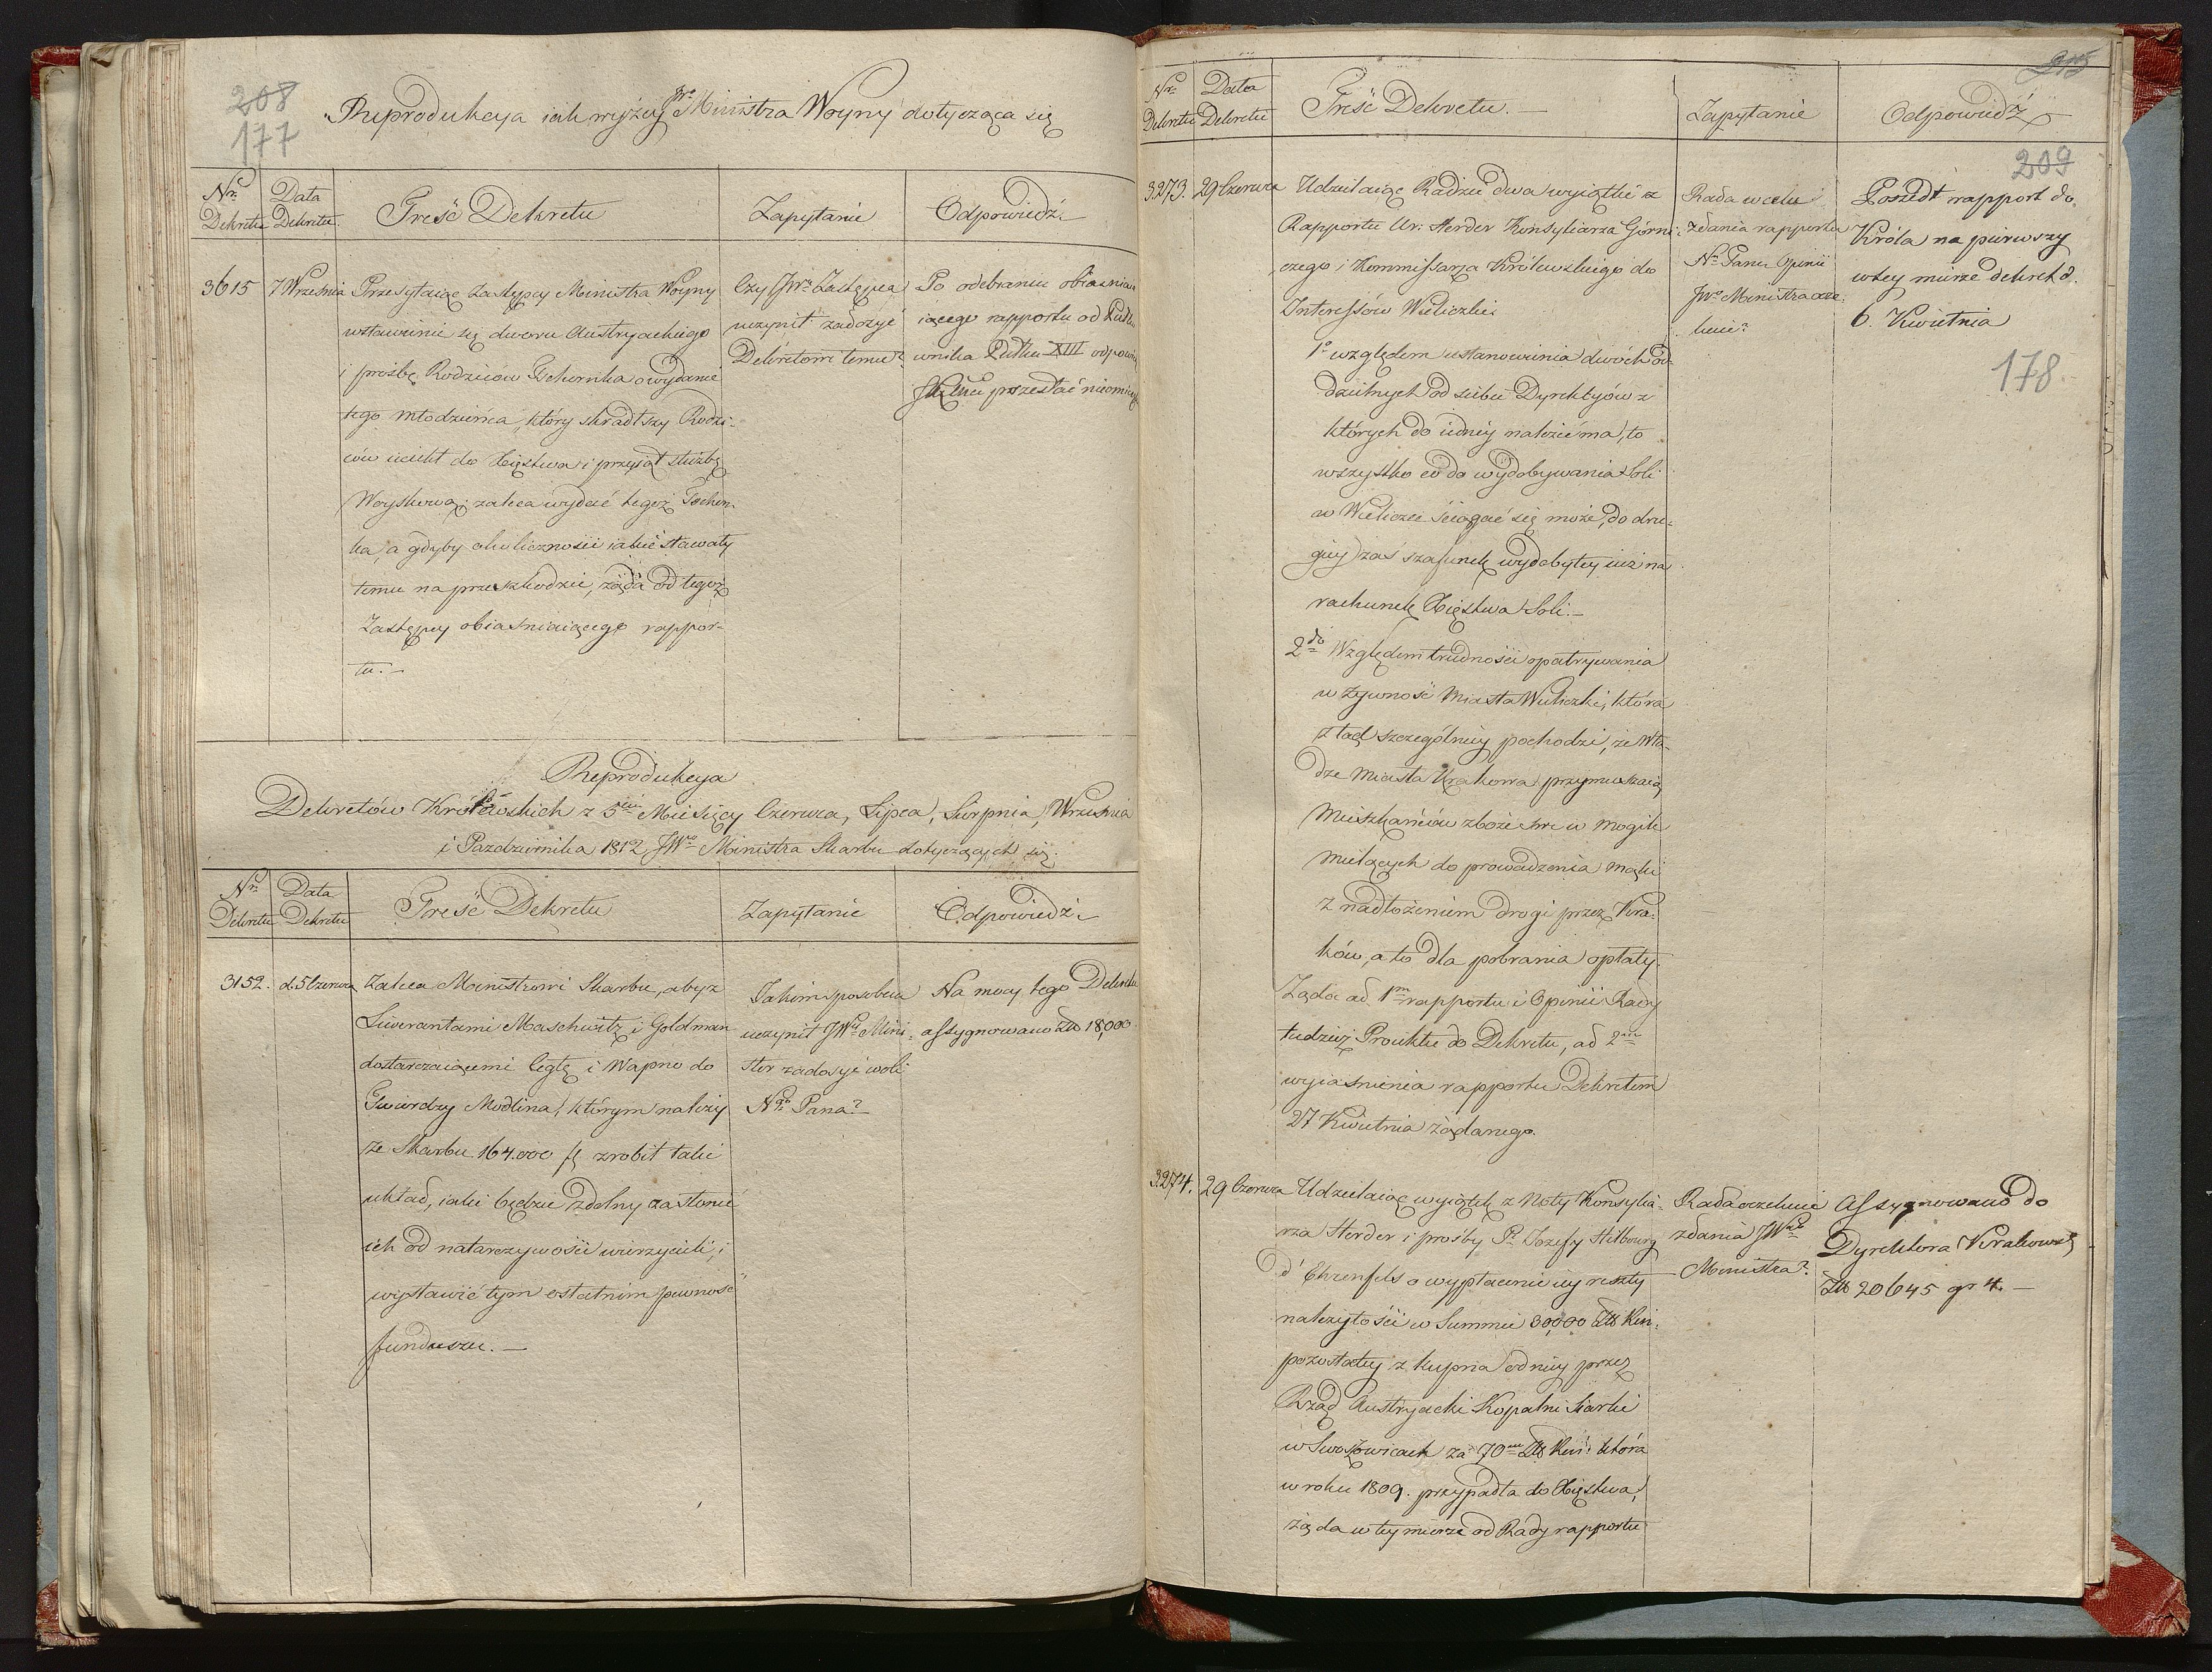 208
177
Reprodukcya iak wyżey JWo Ministra Woyny dotycząca się
Nro Dekretu
Data Dekretu
Treść Dekretu
Zapytanie
Odpowiedź
3615
7 Września
Przesyłaiąc Zastępcy Ministra Woyny
wstawienie się dworu Austryackiego
i prośbę Rodziców Tschernka o wydanie
tego młodzieńca, który skradłszy Rodzi-
ców uciekł do Xięstwa i przyiął służbę
Woyskową; zaleca wydać tegoż Tschern-
ka, a gdyby okoliczności iakie stawały
temu na przeszkodzie, żąda od tegoż
Zastępcy obiaśniaiącego rappor-
tu. —
Czy JWo Zastępca
uczynił zadosyć
Dekretowi temu?
Po odebraniu obiaśnia
iącego rapportu od Pułko
wnika Pułku XIII odpowie
przesłać nieomie
Reprodukcya
Dekretów Królewskich z 5ciu Miesięcy Czerwca, Lipca, Sierpnia, Września
i Pazdziernika 1812 JWo Ministra Skarbu dotyczących się.
Nro Dekretu
Data Dekretu
Treść Dekretu
Zapytanie
Odpowiedź
3152.
d. 5 Czerwca
Zaleca Ministrowi Skarbu, aby z
Liwerantami Maschwitz i Goldman
dostarczaiącemi Cegłę i Wapno do
Twierdzy Modlina, którym należy
ze Skarbu 164.000 fl zrobił taki
układ, iaki będzie zdolny zasłonić
ich od natarczywości wierzycieli, i
wystawić tym ostatnim pewność
funduszu. —
Jakim sposobem
uczynił JWo Mini-
ster zadosyć woli
Ngo Pana?
Na mocy tego Dekretu
assygnowano Zł 18,000
215
Nro Dekretu
Data Dekretu
Treść Dekretu. —
Zapytanie
Odpowiedź
209
178.
3273.
29 Czerwca
Udzielaiąc Radzie dwa wyiątki z
Rapportu Ur: Herder Konsyliarza Górni-
czego i Kommissarza Królewskiego do
Interessów Wieliczki
1o względem ustanowienia dwóch od-
dzielnych od siebie Dyrekcyów z
których do iedney należeć ma, to
wszystko co do wydobywania Soli
w Wieliczce ściągać się może, do dru-
giey zaś szafunek wydobytey iuż na
rachunek Xięstwa Soli. —
2do Względem trudności opatrywania
w żywność Miasta Wieliczki, która
ztąd szczególniey pochodzi, że Wła-
dze Miasta Krakowa przymuszaią
Mieszkańców zboże swe w Mogile
mielących do prowadzenia mąki
z nadłożeniem drogi przez Kra-
ków, a to dla pobrania opłaty.
Żąda ad 1m rapportu i Opinii Rady
tudzież Proiektu do Dekretu, ad 2m
wyiaśnienia rapportu Dekretem
27 Kwietnia żądanego.
Rada w celu
zdania rapportu
No Panu Opinii
JWo Ministra ocze-
kuie?
Poszedł rapport do
Króla na pierwszy
w tey mierze dekret d.
6. Kwietnia
3274.
29 Czerwca
Udzielaiąc wyiątek z Noty Konsylia-
rza Herder i prośby Pi Jozefy Hilbourg
d'Ehrenfels o wypłacenie iey reszty
należytości w Summie 30,000 Zł Reń:
pozostałey z kupna od niey przez
Rząd Austryacki Kopalni siarki
w Swoszowicach za 70m Zł Reń: która
w roku 1809. przypadła do Xięstwa,
żąda w tey mierze od Rady rapportu
Rada oczekuie
zdania JWo
Ministra?
Assygnowano do
Dyrektora Krakowsk
Zł 20645 gr 4. —